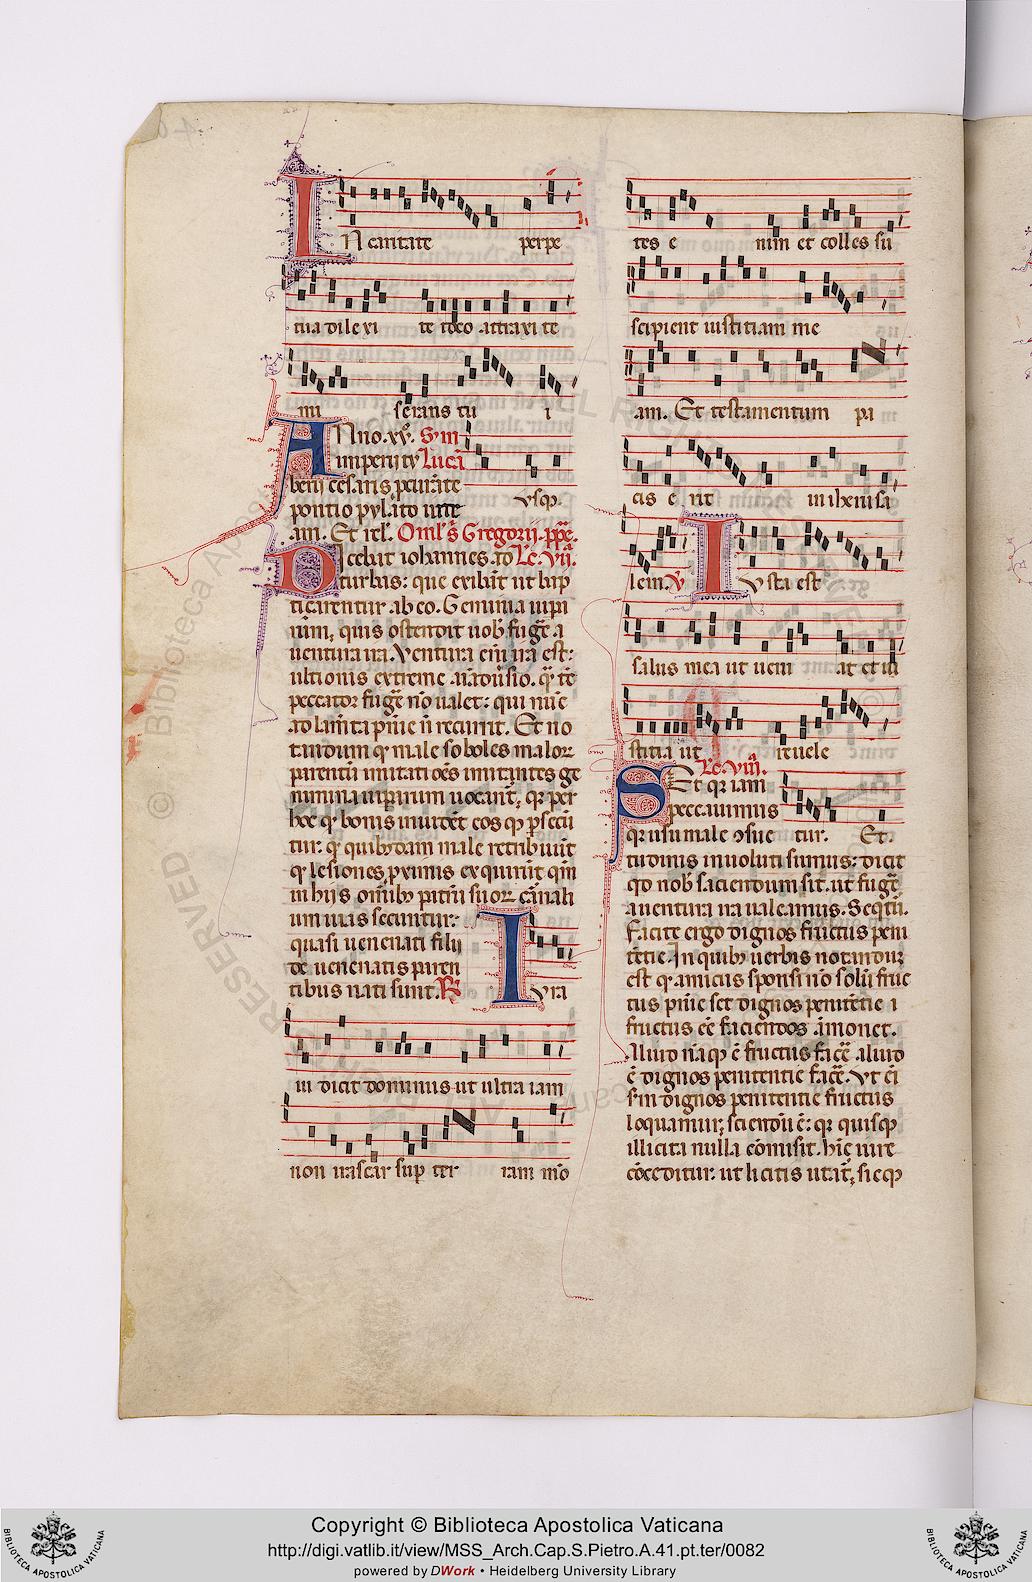 IN caritate perpe
tua dilexi te ideo attraxi te
mi serans tu i
Anno. xv. Sȳm
imperij tyᵇ Luca
berij cesaris pcurāte
pontio pylato iu
am. Et rel̄. Oml's Gregorij. ppē.
Dicebat iohannes. ad Le. vij.
turbas: que exibāt ut bap
ticarentur ab eo. Genima uipe
rum, quis ostendit uob fugē a
uentura ira. Ventura eīm ira est:
ultionis extreme aīaduīsio. quā tc̄
peccator fugē nō ualet: qui nūc
ad lamēta pnīe n̄ recurrit. Et no
tandum qd male soboles malorꝝ
parentū imitatōēs imitantes ge
nimina uiperarum uocant̄, qꝛ per
hec qd bonis inuidēt eos qꝫ psecū
tur. qd quibꝫdam male retribuūt
qd lesiones pximis exquirūt qm̄
in hijs om̄ibꝫ patrū suorꝝ carnali
um uias secuntur:
quasi uenenati filij
de uenenatis paren
tibus nati sunt. R̄
Iura
ui dicit dominus ut ultra iam
non irascar sup ter ram mō
tes e nim et colles su
scipient iustitiam me
am. Et testamentum pa
cis e rit in iherusa
lem. V̄ Iuxta est
salus mea ut ueni at et iu
stitia ut reuele
Le. viij.
Set qꝛ iam
peccauimus
qꝛ usu male ↄsue tur. Et.
tudinis inuoluti sumus: dicat
qd nob faciendum sit. ut fugē
a uentura ira ualeamus. Seqt̄ur.
Facite ergo dignos fructus peni
tētie. In quibꝫ uerbis notandum
est qd amicus sponsi nō solū fruc
tus pnīe set dignos penitētie
fructus eē faciendos amonet.
Aliud nāqꝫ ē fructus facē aliud
ē dignos penitentie facē. Vt eī
sm̄ dignos penitentie fructus
loquamur, sciendū ē: qꝛ quisqꝫ
illicita nulla cōmisit. hīc iure
cōceditur: ut licitis utat̄, sicqꝫ
Copyright © Biblioteca Apostolica Vaticana
http://digi.vatlib.it/view/MSS_Arch.Cap.S.Pietro.A.41.pt.ter/0082
powered by DWork • Heidelberg University Library
BIBLIOTECA APOSTOLICA VATICANA
BIBLIOTECA APOSTOLICA VATICANA